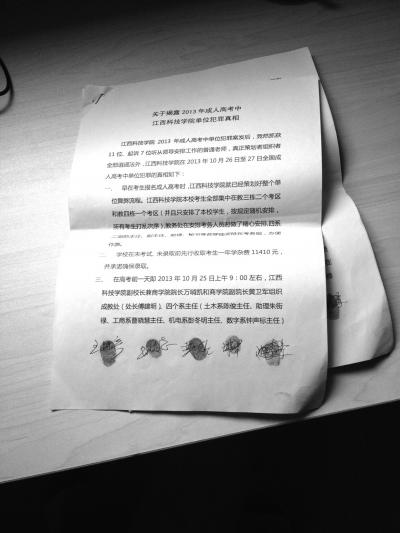 关于揭露 2013 年成人高考中
江西科技学院单位犯罪真相
江西科技学院 2013 年成人高考中单位犯罪案发后，竟然抓获
11 位、起诉 7 位听从领导安排工作的普通老师，真正策划者组织者
全部逍遥法外，江西科技学院在 2013 年 10 月 26 日至 27 日全国成
人高考中单位犯罪的真相如下：
一、 早在考生报名成人高考时，江西科技学院就已经策划好整个单
位舞弊流程。江西科技学院本校考生全部集中在教三栋二个考区
和教四栋一个考区（并且只安排了本校学生，按规定随机安排，
所有考生打乱次序），教务处在安排考务人员时做了精心安排，四系
二、 学校在未考试、未录取前先行收取考生一年学杂费 11410 元，
并承诺确保录取。
三、 在高考前一天即 2013 年 10 月 25 日上午 9：00 左右，江西
科技学院副校长兼商学院院长万晓凯和商学院副院长黄卫军组织
成教处（处长傅建明）、四个系主任（土木系陈俊主任、助理朱衙
禄、工商系曹晓慧主任、机电系彭冬明主任、数字系钟声标主任）